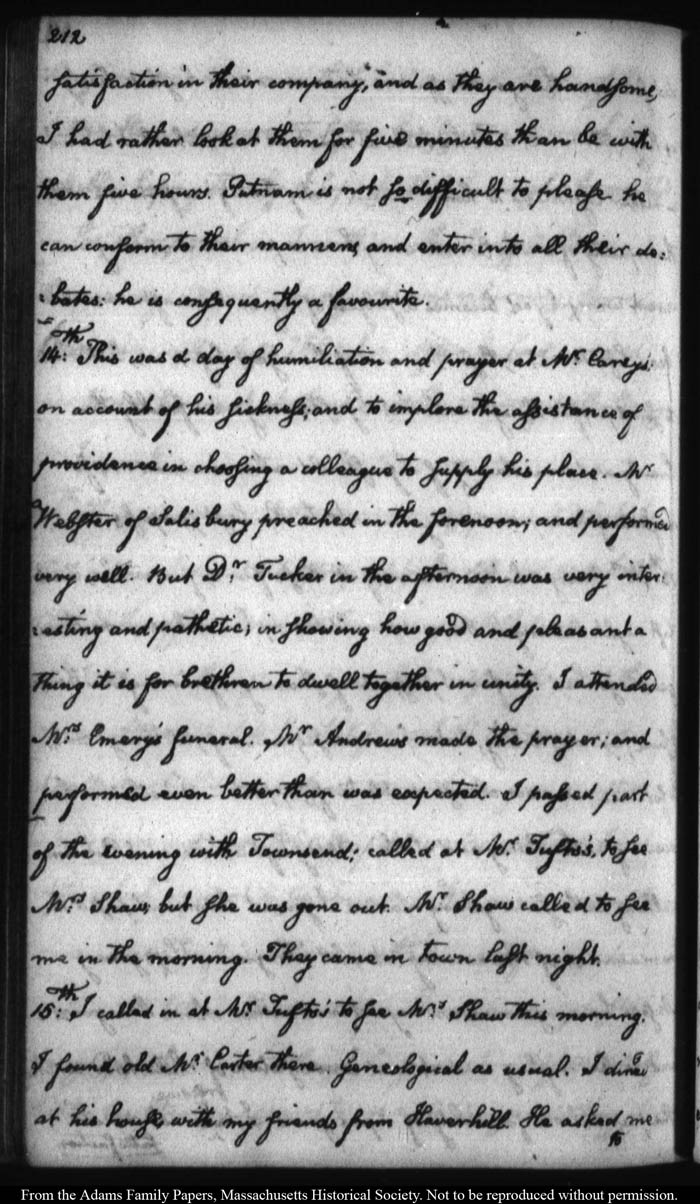 212
satisfaction in their company, and as they are handsome,
I had rather look at them for five minutes than be with
them five hours. Putnam is not so difficult to please he
can conform to their manners, and enter into all their de:
:bates: he is consequently a favourite.
14:th This was a day of humiliation and prayer at Mr. Carey's:
on account of his sickness; and to implore the assistance of
providence in choosing a colleague to supply his place. Mr
Webster of Salisbury preached in the forenoon; and perform'd
very well. But Dr. Tucker in the afternoon was very inter:
:esting and pathetic; in showing how good and pleasant a
thing it is for brethren to dwell together in unity. I attended
Mrs. Emery's funeral. Mr Andrews made the prayer; and
performed even better than was expected. I passed part
of the evening with Townsend; called at Mr. Tufts's, to see
Mrs. Shaw, but she was gone out. Mr. Shaw called to see
me in the morning. They came in town last night.
15:th I called in at Mr. Tufts's to see Mrs. Shaw this morning.
I found old Mr. Carter there. Geneological as usual. I dined
at his house, with my friends from Haverhill. He asked me
to
From the Adams Family Papers, Massachusetts Historical Society. Not to be reproduced without permission.